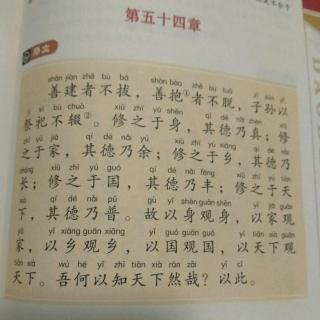 第五十四章
原文
shàn jiàn zhě bù bá shàn bào zhě bù tuō zǐ sūn yǐ
善建者不拔，善抱①者不脱，子孙以
jì sì bù chuò xiū zhī yú shēn qí dé nǎi zhēn xiū
祭祀不辍②。修之于身，其德乃真；修
zhī yú jiā qí dé nǎi yú xiū zhī yú xiāng qí dé nǎi
之于家，其德乃余；修之于乡，其德乃
xiū zhī yú guó qí dé nǎi fēng xiū zhī yú tiān
长；修之于国，其德乃丰；修之于天
xià qí dé nǎi pǔ gù yǐ shēn guān shēn yǐ jiā guān
下，其德乃普。故以身观身，以家观
jiā yǐ xiāng guān xiāng yǐ guó guān guó yǐ tiān xià guān
家，以乡观乡，以国观国，以天下观
tiān xià wú hé yǐ zhī tiān xià rán zāi yǐ cǐ
天下。吾何以知天下然哉？以此。